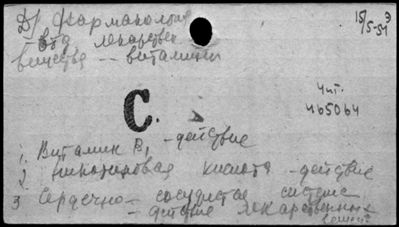 Д) Фармакология
15/5-51 Э
вод лекарствен
вещества -- витамины
Чит.
465064
С.
1. Витамин В, - действие
2 Никотиновая кислота - действие
3 Сердечно - сосудистая система
- действие лекарственных
вещест